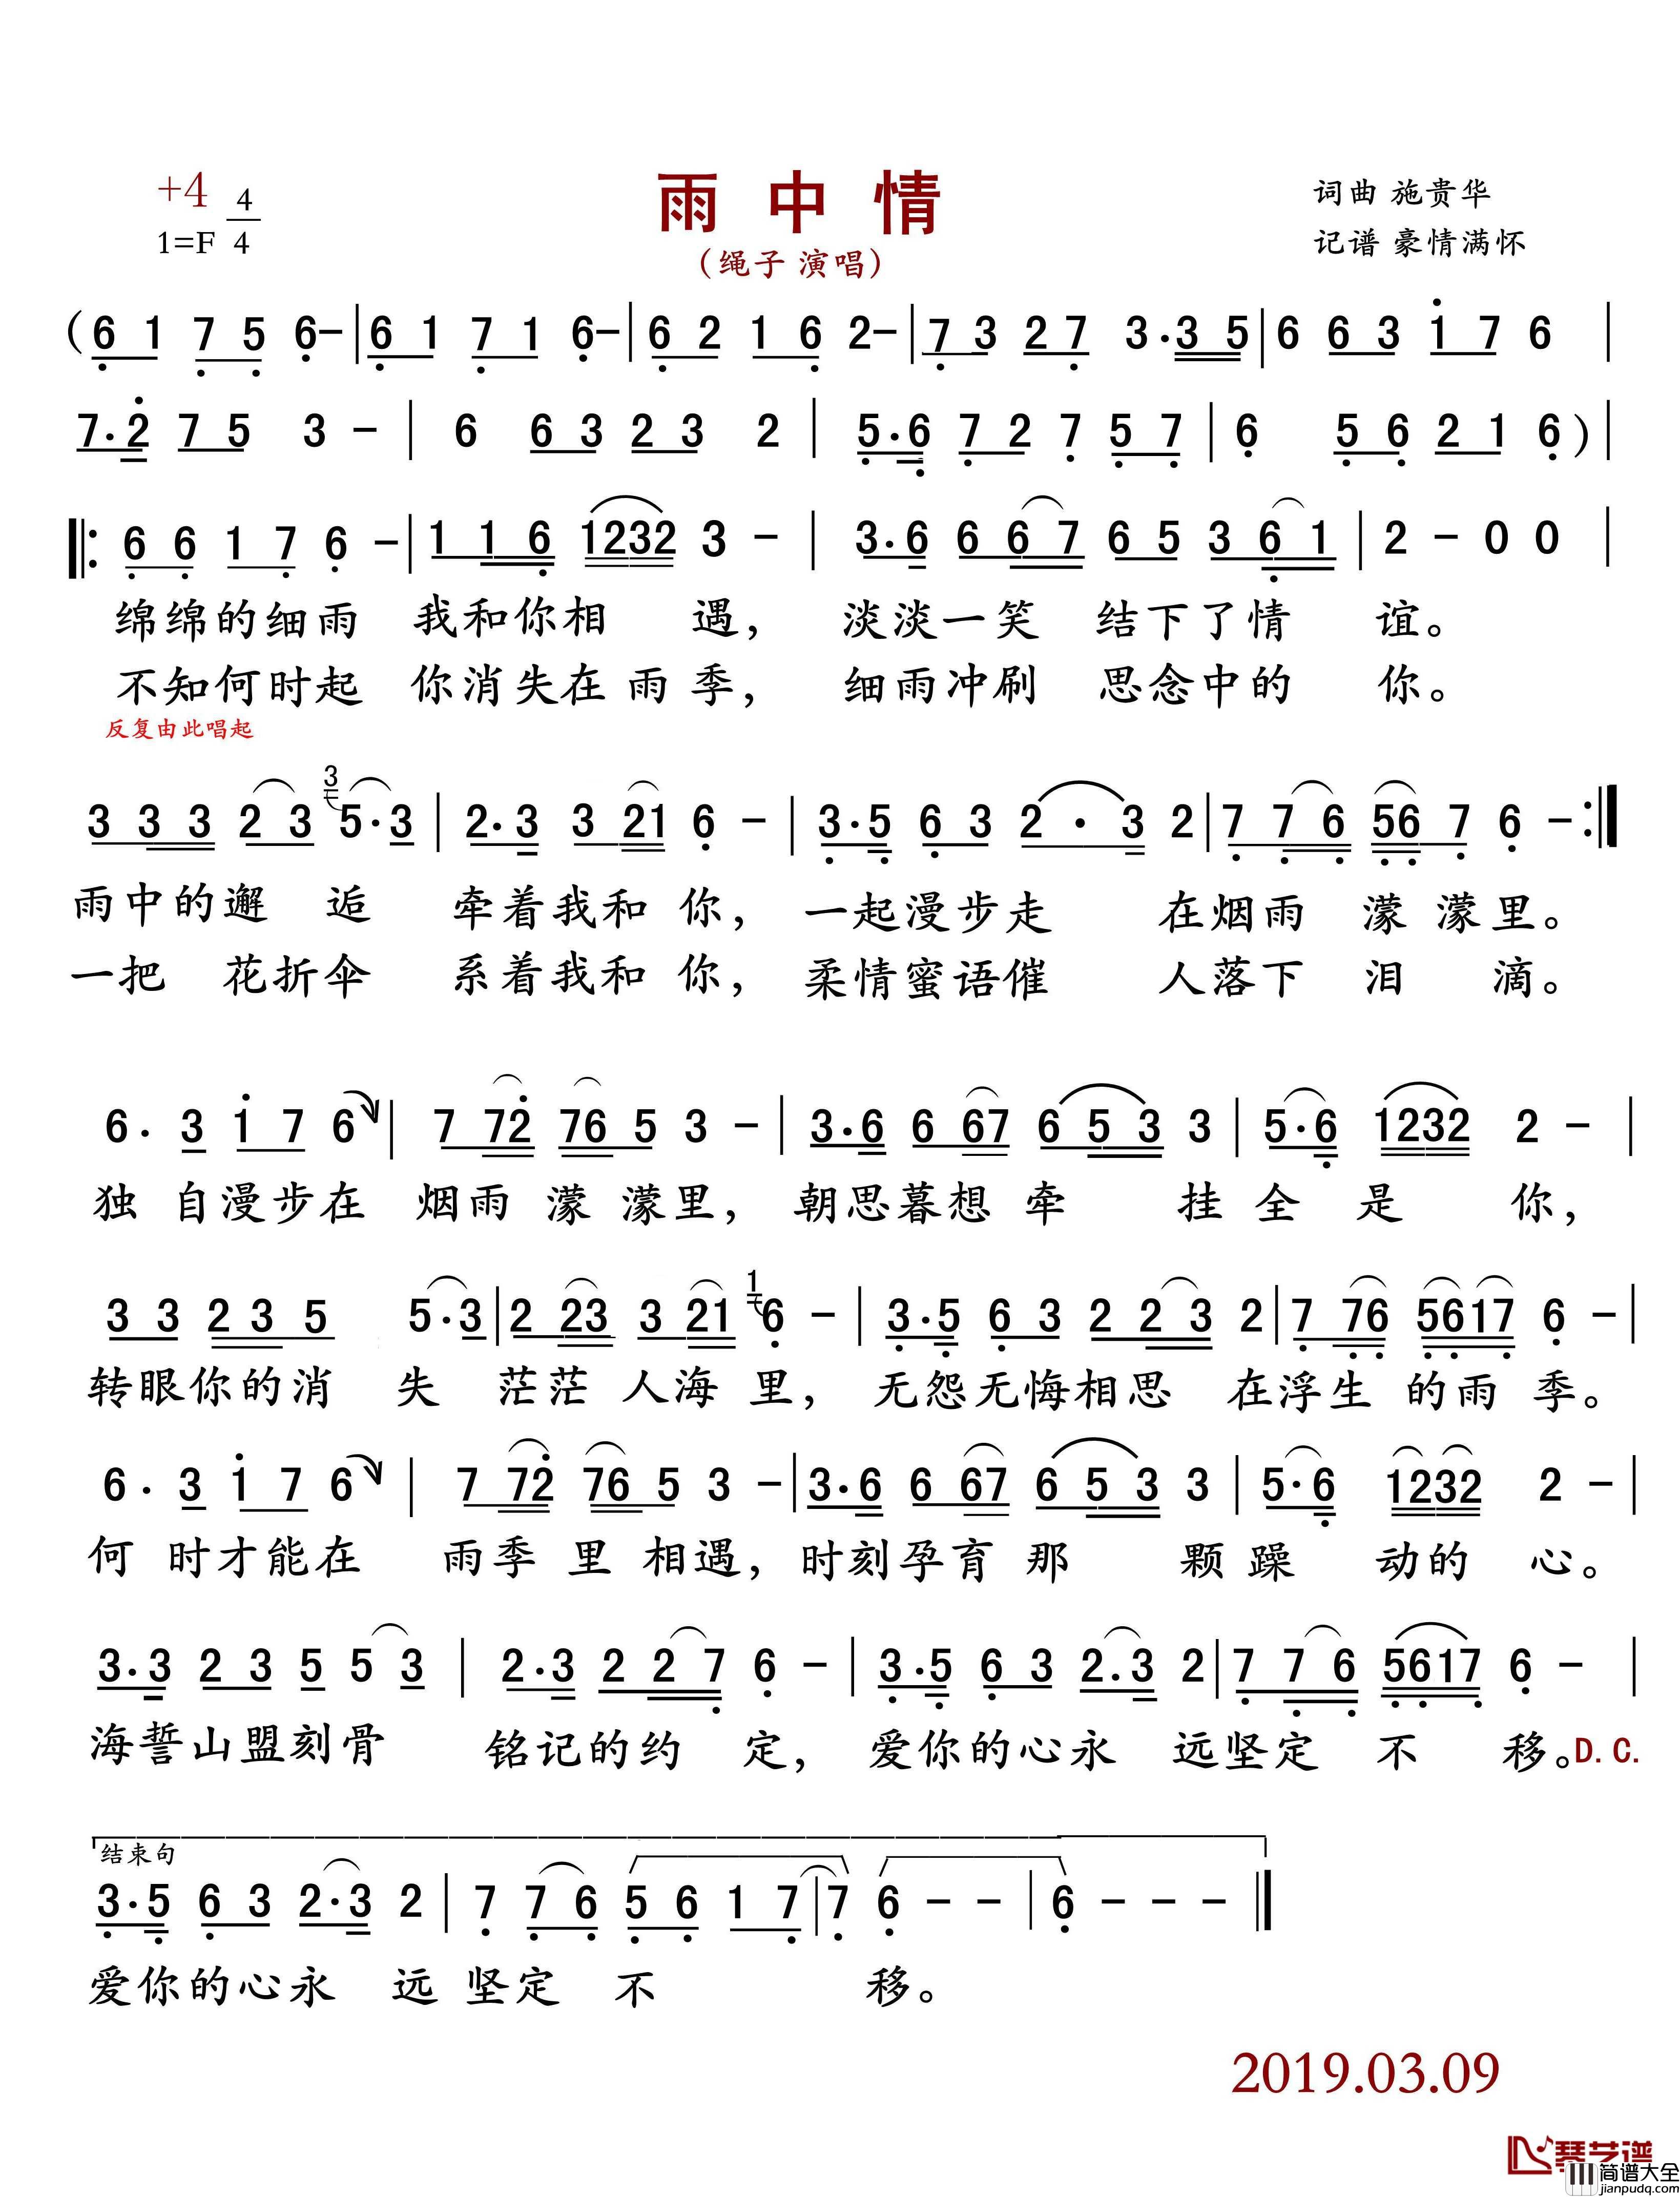 +4 4/4
1=F
雨中情
(绳子 演唱)
词曲 施贵华
记谱 豪情满怀
(6 1 7 5 6-|6 1 7 1 6-|6 2 1 6 2-|7 3 2 7 3·3 5|6 6 3 1 7 6|
7·2 7 5 3 -|6 6 3 2 3 2|5·6 7 2 7 5 7|6 5 6 2 1 6)|
6 6 1 7 6 -|1 1 6 1232 3 -|3·6 6 6 7 6 5 3 6 1|2 - 0 0|
绵绵的细雨 我和你相 遇, 淡淡一笑 结下了情 谊。
不知何时起 你消失在雨季, 细雨冲刷 思念中的 你。
反复由此唱起
3 3 3 2 3 3 5·3|2·3 3 21 6 -|3·5 6 3 2·3 2|7 7 6 56 7 6 -:|
雨中的邂 逅 牵着我和 你, 一起漫步走 在烟雨 濛 濛里。
一把 花折伞 系着我和 你, 柔情蜜语催 人落下 泪 滴。
6· 3 1 7 6|7 72 76 5 3 -|3·6 6 67 6 5 3 3|5·6 1232 2 -|
独 自漫步在 烟雨 濛 濛里, 朝思暮想 牵 挂 全 是 你,
3 3 2 3 5 5·3|2 23 3 21 1 6 -|3·5 6 3 2 2 3 2|7 76 5617 6 -|
转眼你的消 失 茫茫 人海 里, 无怨无悔相思 在浮生 的雨 季。
6· 3 1 7 6|7 72 76 5 3 -|3·6 6 67 6 5 3 3|5·6 1232 2 -|
何 时才能在 雨季 里 相遇, 时刻孕育 那 颗 躁 动的 心。
3·3 2 3 5 5 3|2·3 2 2 7 6 -|3·5 6 3 2·3 2|7 7 6 5617 6 -|
海誓山盟刻骨 铭记的约 定, 爱你的心永 远坚定 不 移。D.C.
结束句
3·5 6 3 2·3 2|7 7 6 5 6 1 7|7 6 - -|6 - - -|
爱你的心永 远 坚定 不 移。
2019.03.09
琴艺谱
简谱大全
jianpudq.com